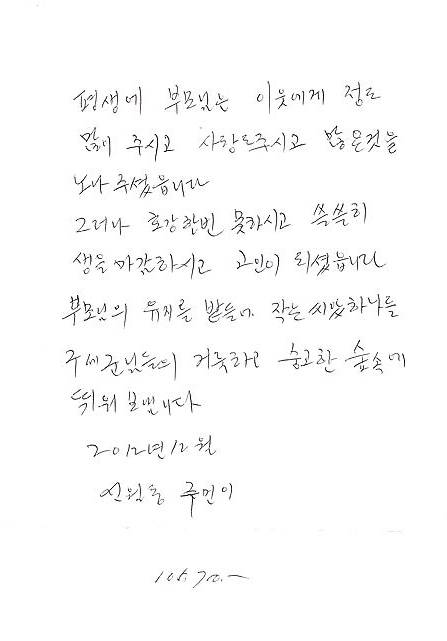 평생에 부모님는 이웃에게 정도
많이 주시고 사랑도주시고 많은것을
노나 주셨읍니다
그러나 호강한번 못하시고 쓸쓸히
생을마감하시고 고인이 되셨읍니다
부모님의 유지를 받들어 작는씨앗하나를
구세군님들의 거룩하고 숭고한 숲속에
띄워 보냅니다
2012년12월
신월동 주민이